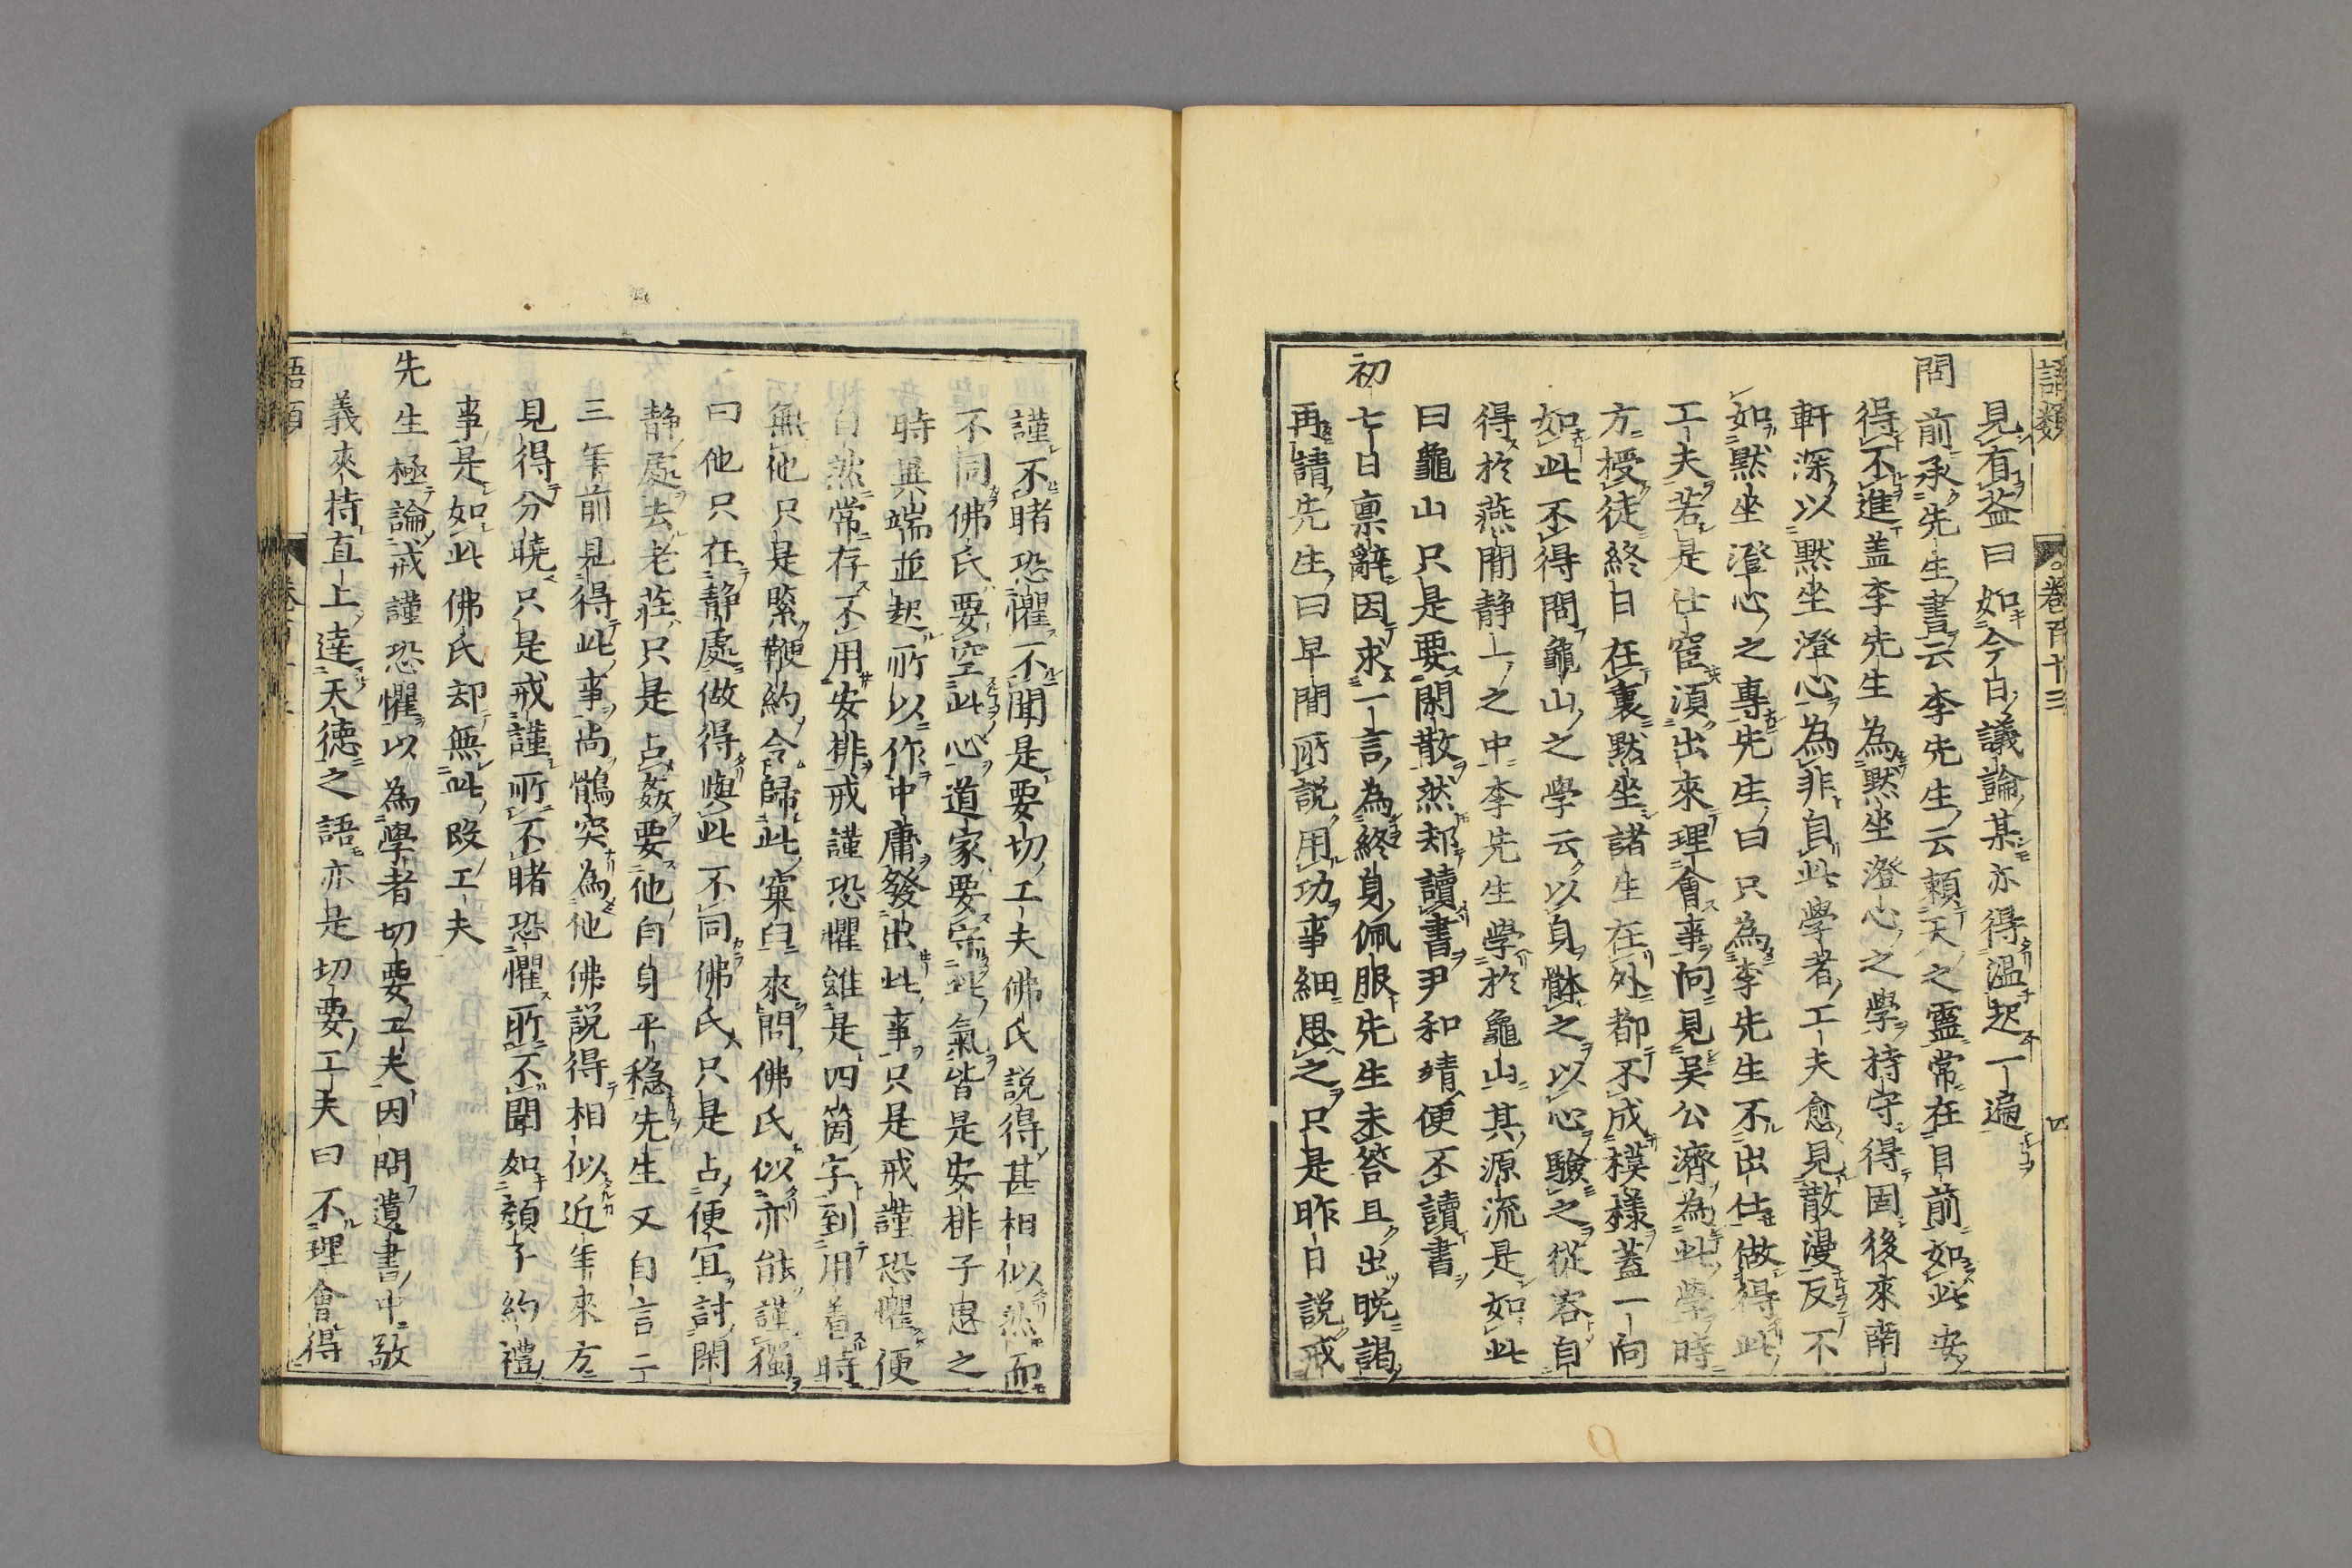 語類 卷百十三 四
見有益曰如今日議論某亦得溫起一遍
問前承先生書云李先生云賴天之靈常在目前如此安
得不進蓋李先生為默坐澄心之學持守得固後來南
軒深以默坐澄心為非自此學者工夫愈見散漫反不
如默坐澄心之專先生曰只為李先生不出仕做得此
工夫若是仕宦須出來理會事向見吳公濟為此學時
方授徒終日在裏默坐諸生在外都不成模樣蓋一向
如此不得問龜山之學云以身體之以心驗之從容自
得於燕閒靜一之中李先生學於龜山其源流是如此
曰龜山只是要閑散然却讀書尹和靖便不讀書
初七日稟辭因求一言為終身佩服先生未答且出晚謁
再請先生曰早間所說用功事細思之只是昨日說戒
謹不睹恐懼不聞是要切工夫佛氏說得甚相似然而
不同佛氏要空此心道家要守此氣皆是安排子思之
時異端並起所以作中庸發出此事只是戒謹恐懼便
自然常存不用安排戒謹恐懼雖是四箇字到用着時
無他只是緊鞭約令歸此窠臼來問佛氏似亦能謹獨
曰他只在靜處做得與此不同佛氏只是占便宜討閑
靜處去老莊只是占姦要他自身平穩先生又自言二
三年前見得此事尚鶻突為他佛說得相似近年來方
見得分曉只是戒謹所不睹恐懼所不聞如顏子約禮
事是如此佛氏却無此段工夫
先生極論戒謹恐懼以為學者切要工夫因問遺書中敬
義夾持直上達天德之語亦是切要工夫曰不理會得
語類